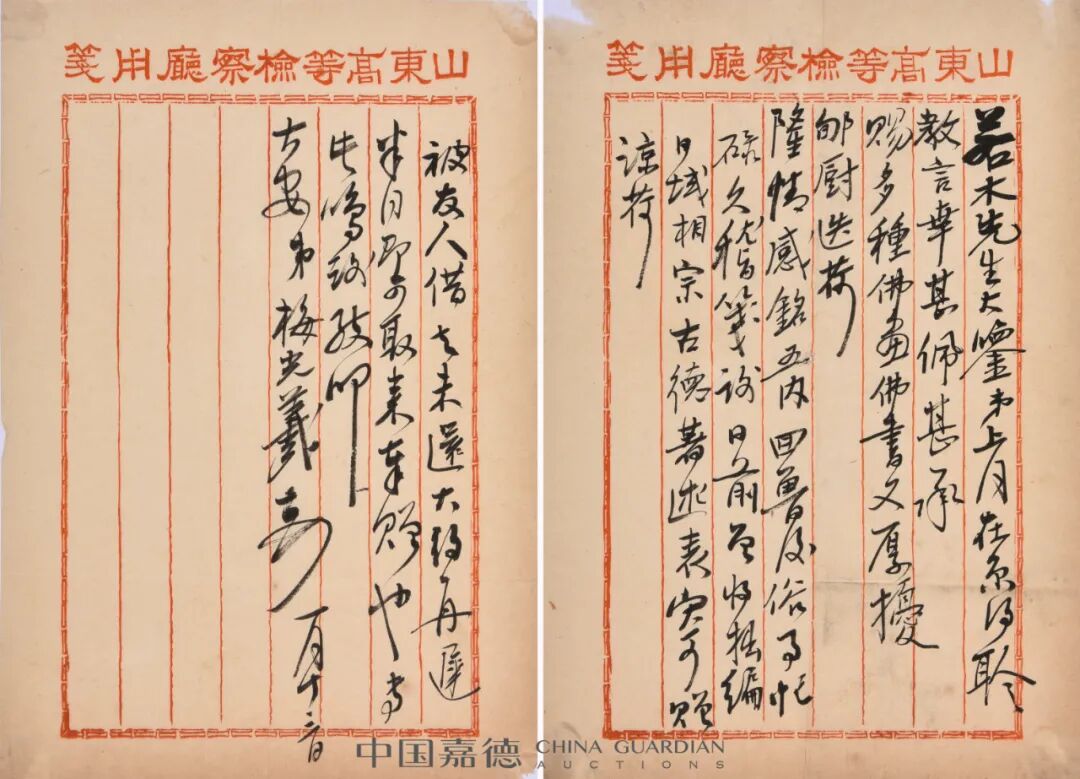 山東高等檢察廳用箋
若木先生大鑒弟上月在京得聆
教言幸甚佩甚承
賜多種佛畫佛書又厚擾
郇厨迭荷
隆情感銘五内回魯後俗事忙
碌久稽箋謝日前曾將拙編
日域相宗古德著述表寄贈
諒荷
山東高等檢察廳用箋
被友人借去未還大約再遲
半月即可取来奉贈也專
此鳴謝敬叩
大安弟梅光羲
一月十三日
中国嘉德 CHINA GUARDIAN AUCTIONS